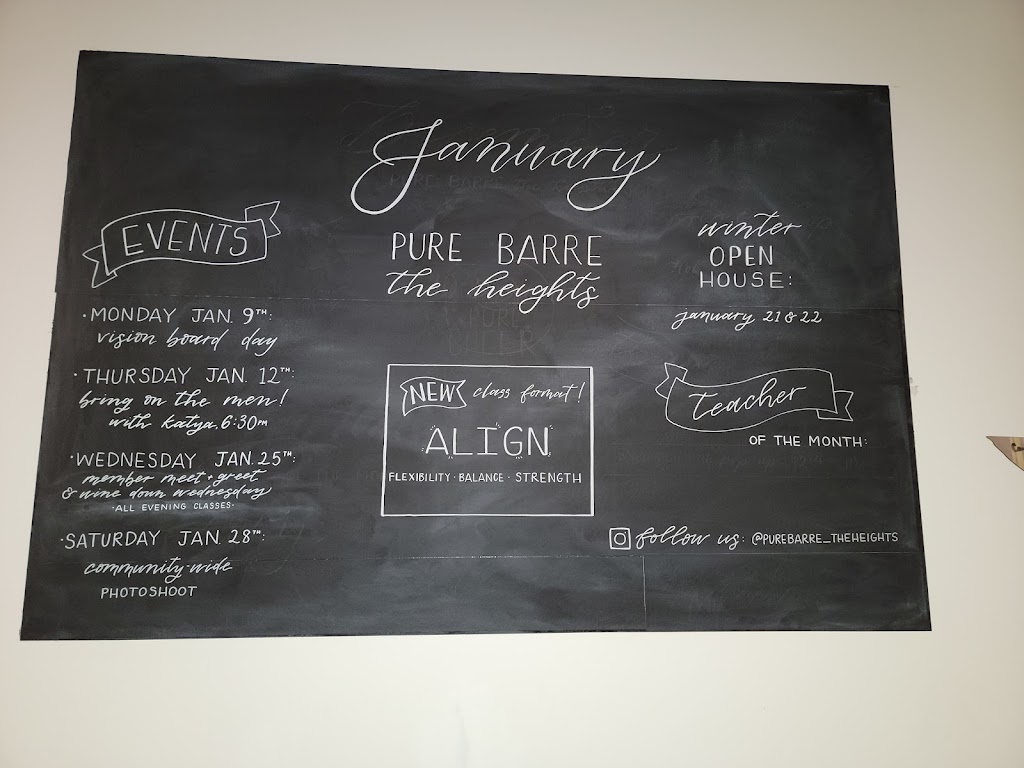 January
EVENTS
· MONDAY JAN. 9TH:
vision board day
· THURSDAY JAN. 12TH:
bring on the men!
with katya 6:30PM
· WEDNESDAY JAN. 25TH:
member meet + greet
& wine down wednesday
· ALL EVENING CLASSES ·
· SATURDAY JAN. 28TH:
community-wide
PHOTOSHOOT
PURE BARRE
the heights
NEW class format!
ALIGN
FLEXIBILITY · BALANCE · STRENGTH
winter
OPEN
HOUSE:
january 21 & 22
teacher
OF THE MONTH:
follow us: @PUREBARRE_THEHEIGHTS